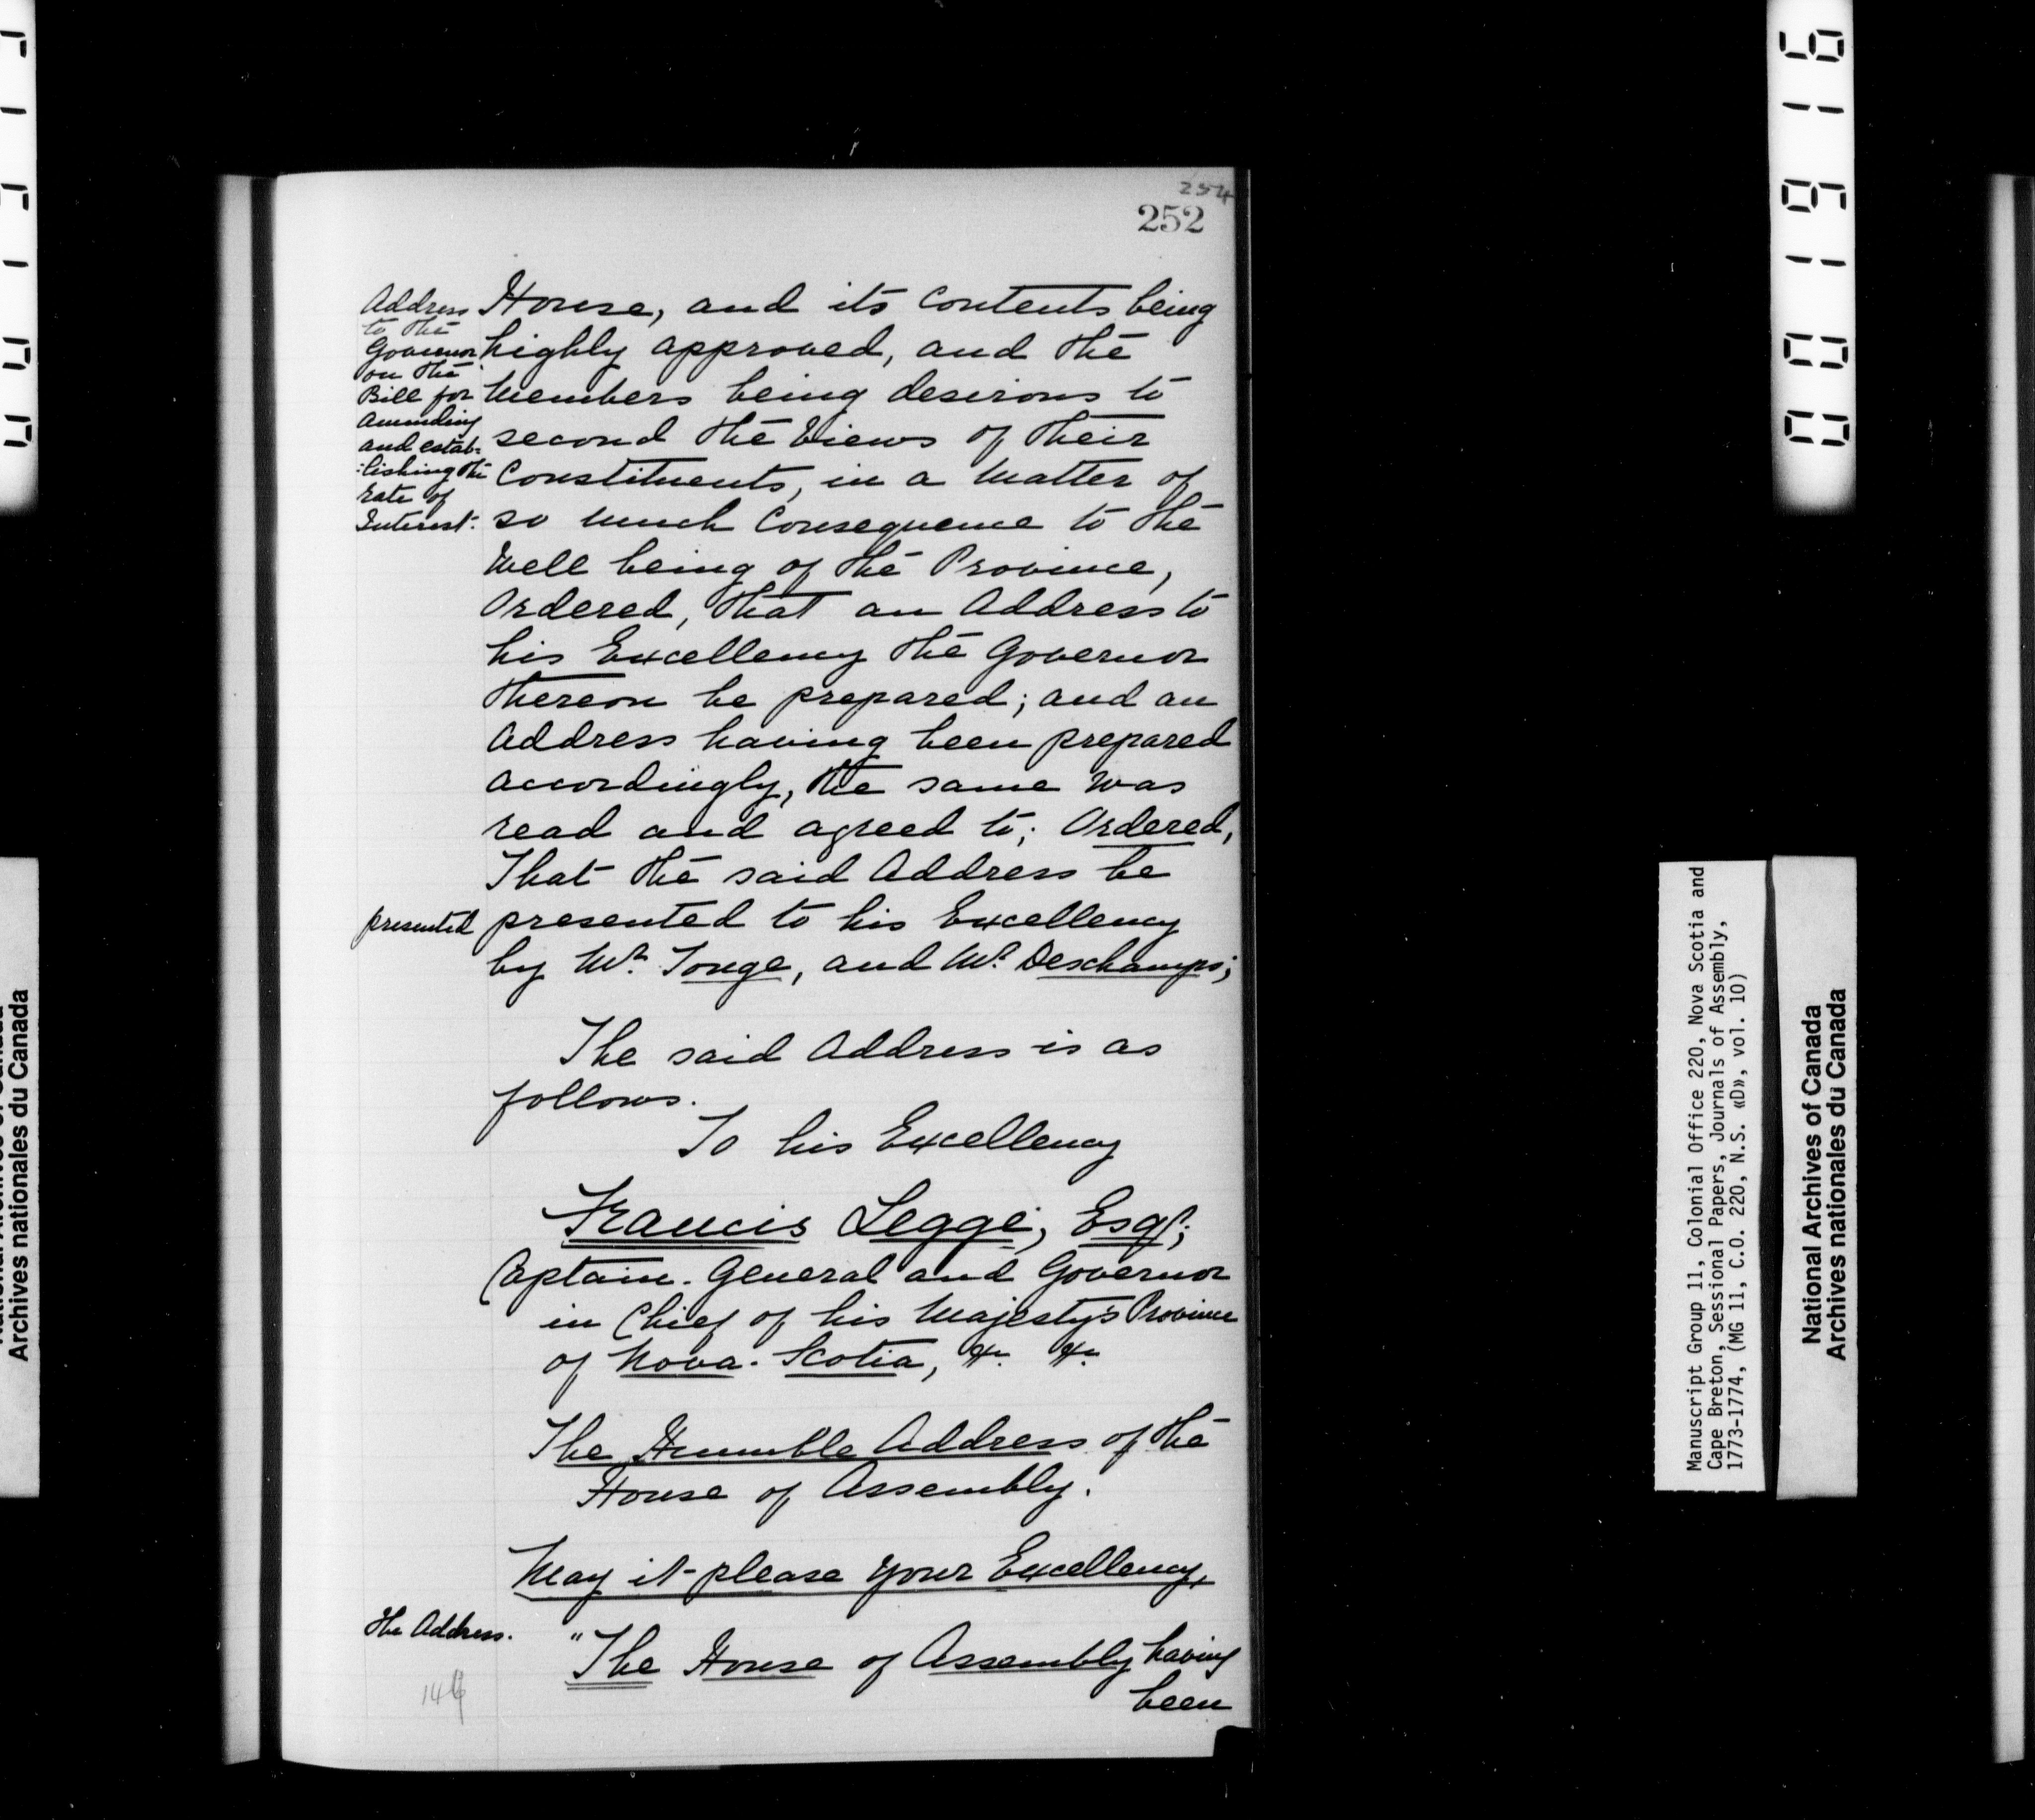 254
252
Address
to the
Governor
on the
Bill for
amending
and estab-
:lishing the
rate of
Interest.
House, and its Contents being
highly approved, and the
Members being desirous to
second the Views of their
Constituents, in a Matter of
so much Consequence to the
Well being of the Province,
Ordered, that an Address to
his Excellency the Governor
thereon be prepared; and an
Address having been prepared
accordingly, the same was
read and agreed to; Ordered,
That the said Address be
presented
presented to his Excellency
by Mr. Tonge, and Mr. Deschamps;
The said Address is as
follows.
To his Excellency
Francis Legge, Esqr;
Captain-General and Governor
in Chief of his Majesty's Province
of Nova-Scotia, &c. &c.
The Humble Address of the
House of Assembly.
May it please your Excellency,
The Address.
"The House of Assembly having
been
146
000196
Manuscript Group 11, Colonial Office 220, Nova Scotia and
Cape Breton, Sessional Papers, Journals of Assembly,
1773-1774, (MG 11, C.O. 220, N.S. «D», vol. 10)
National Archives of Canada
Archives nationales du Canada
Archives nationales du Canada